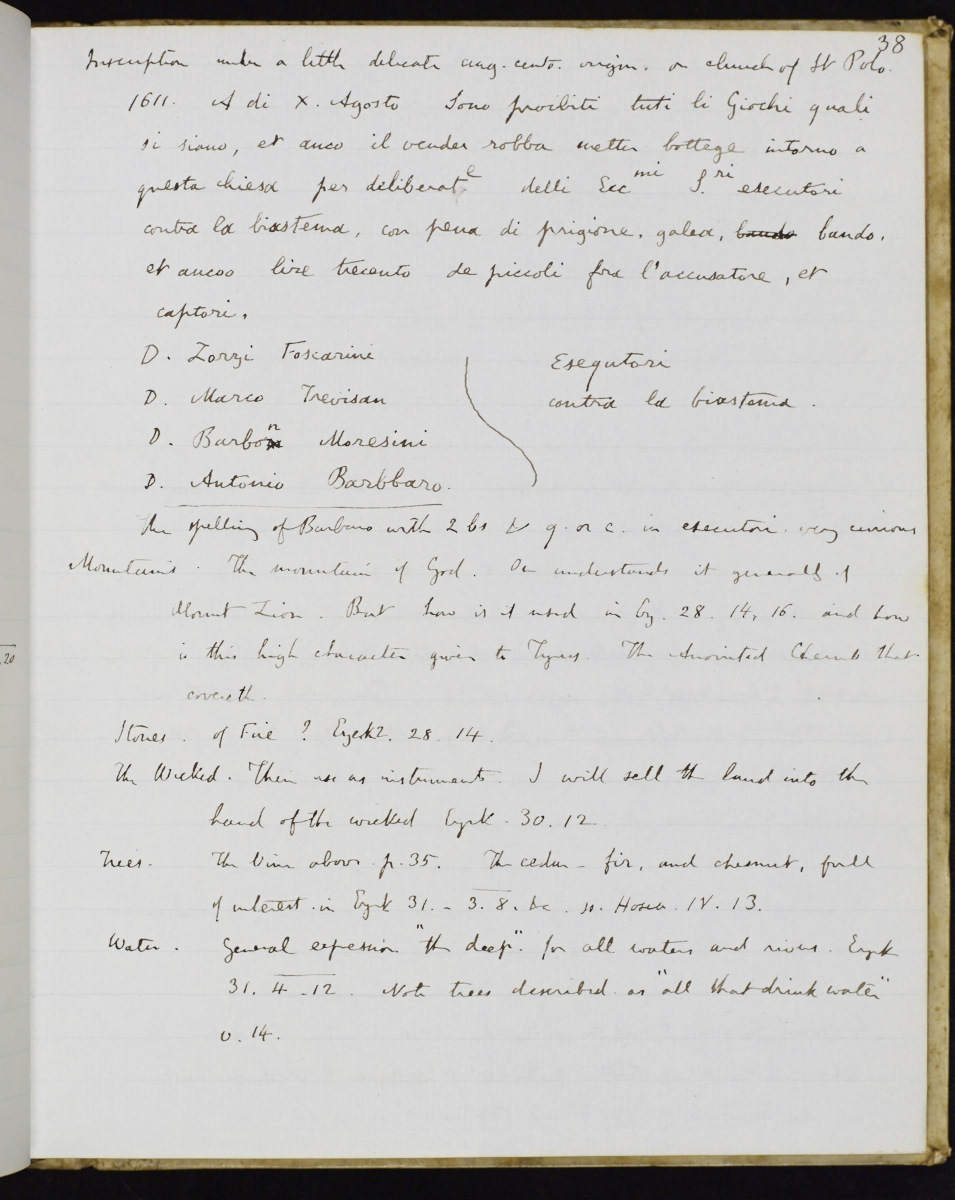 38
Inscription under a little delicate cinq. cento. virgin. on church of St Polo.
1611. A di X. Agosto Sono proibiti tuti li Giochi quali
si siano, et anco il vender robba metter bottege intorno a
questa chiesa per deliberat.e delli Ecc mi S.ri esecutori
contra la biastema, con pena di prigione, galea, bando bando,
et ancoo lire trecento de piccoli fra l'accusatore, et
captori.
D. Zorzi Foscarini
Esegutori
D. Marco Trevisan
contra la biastema.
D. Barbon Moresini
D. Antonio Barbbaro.
The spelling of Barbaro with 2 bs & g. or c. in esecutori very curious
Mountains. The mountain of God. One understands it generally of
Mount Zion. But how is it used in Ez. 28. 14, 16. and how
is this high character given to Tyrus. The Anointed Cherub that
covereth.
,20
Stones. of Fire? Ezek. 28. 14.
The Wicked. Their use as instruments. I will sell the land into the
hand of the wicked Ezek. 30. 12
Trees. The Vine above p. 35. The cedar - fir, and chesnut, full
of interest in Ezek 31. - 3. 8. &c. so. Hosea. IV. 13.
Water. General expression "the deep". for all waters and rivers. Ezek
31. 4 - 12. Note trees described as "all that drink water"
v. 14.